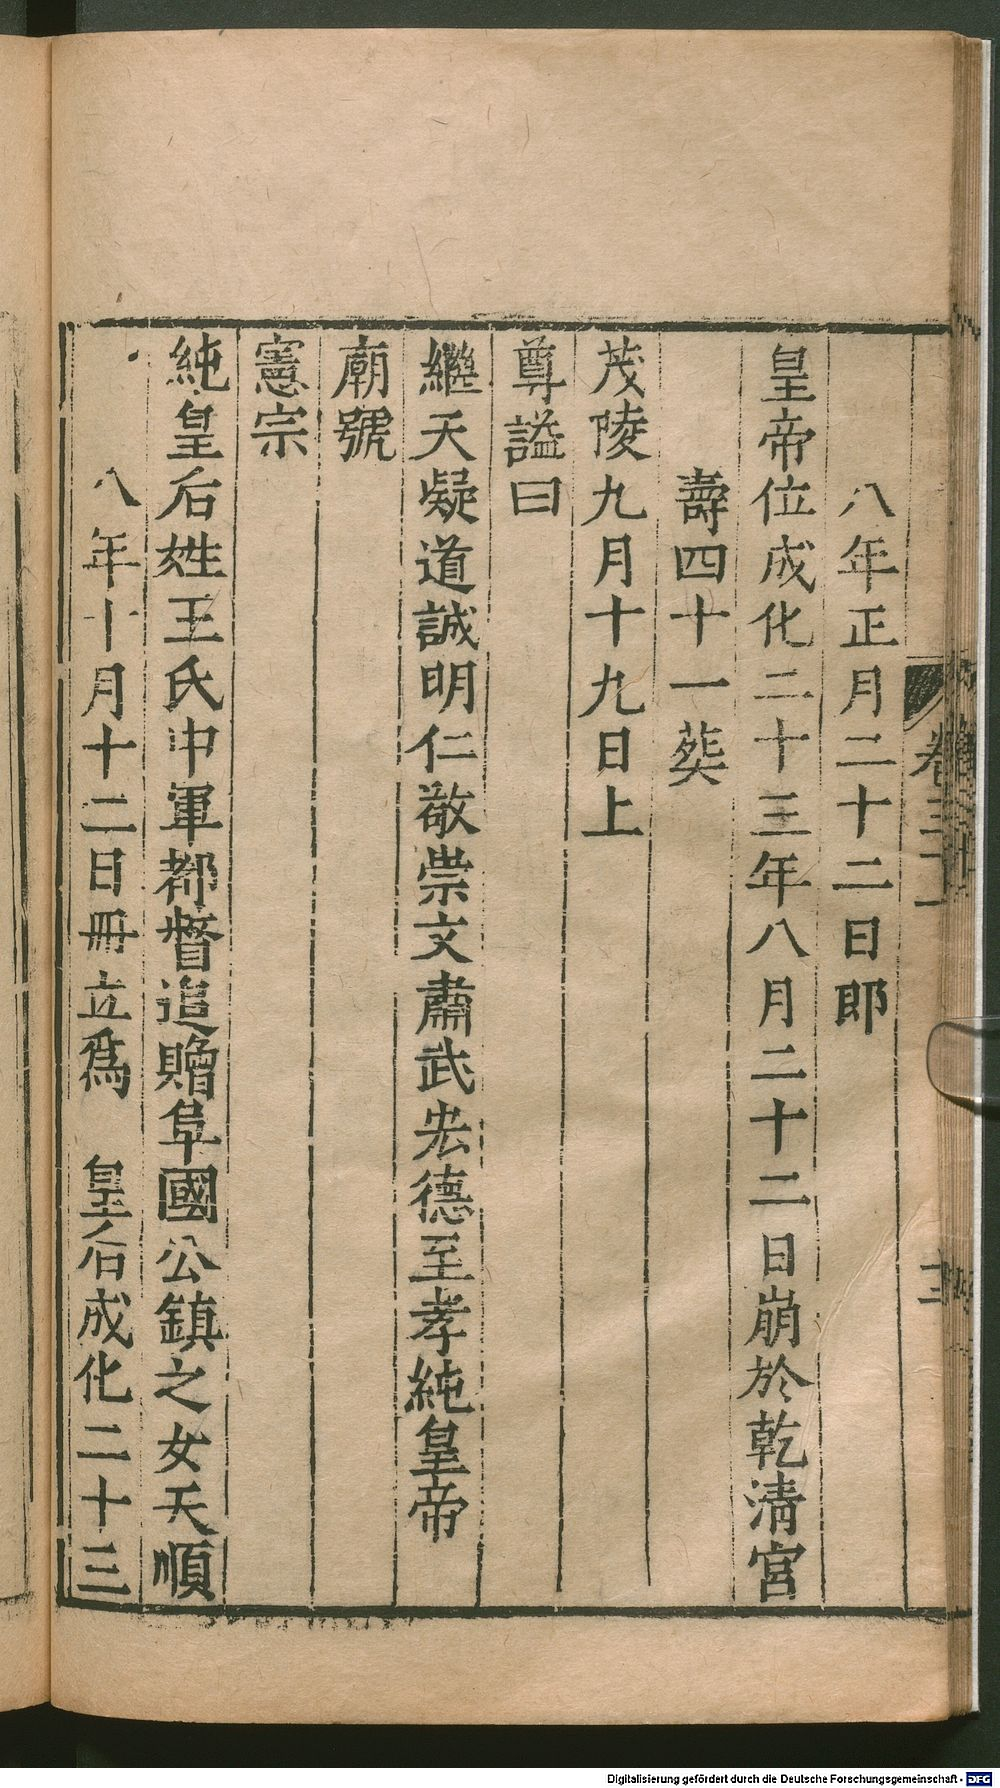 八年正月二十二日郎
皇帝位成化二十三年八月二十二日崩於乾清宮
壽四十一葬
茂陵九月十九日上
尊謚曰
繼天凝道誠明仁敬崇文肅武宏德至孝純皇帝
廟號
憲宗
純皇后姓王氏中軍都督追贈阜國公鎮之女天順
八年十月十二日冊立爲 皇后成化二十三
Digitalisierung gefördert durch die Deutsche Forschungsgemeinschaft - DFG